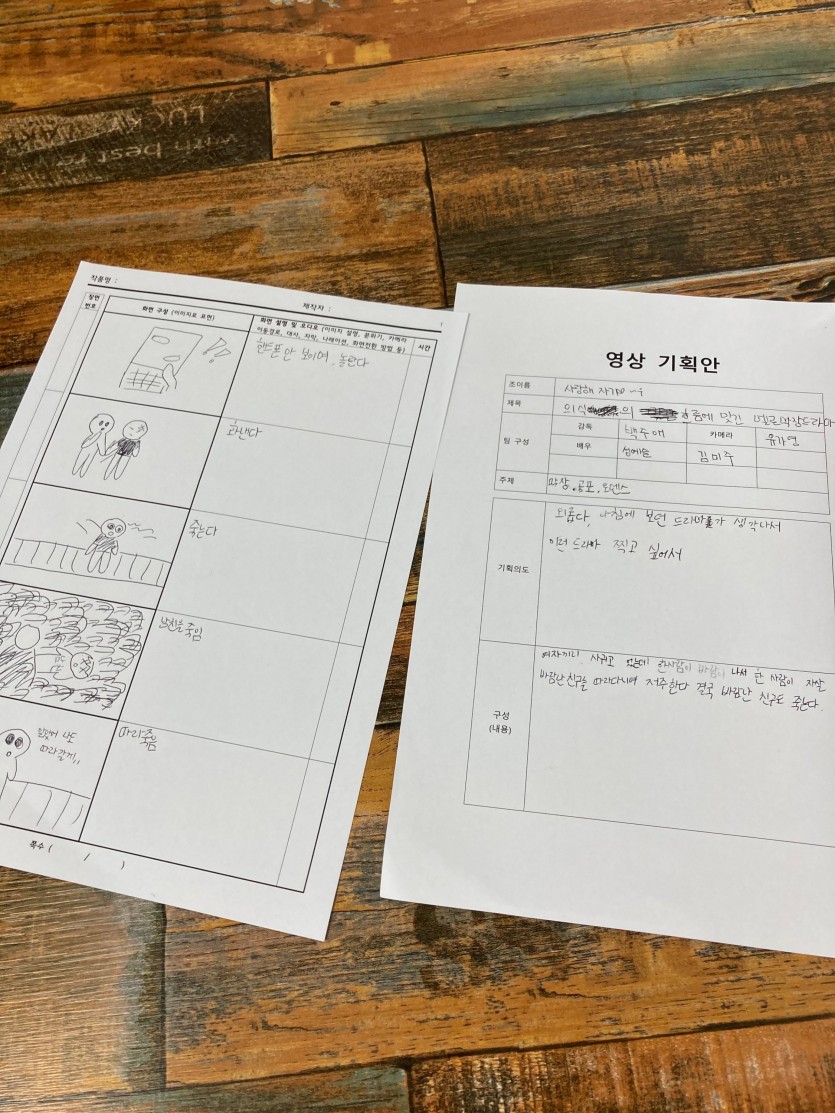 LUCKY
with best re
작품명 :
제작자 :
장면
번호
화면 구성 (이미지로 표현)
화면 설명 및 오디오 (이미지 설명, 분위기, 카메라
이동경로, 대사, 자막, 나레이션, 화면전환 방법 등)
시간
핸드폰 안 보이며, 놀란다
화낸다
죽는다
남친을 죽임
따라죽음
나도
따라갈게,,
쪽수 ( / )
영상 기획안
조이름
사랑해 자기
제목
의식 의 흐름에 맞긴 멜로막장드라마
팀 구성
감독
백주애
카메라
유가영
배우
김미주
주제
막장, 공포, 로맨스
기획의도
외롭다, 아침에 보던 드라마가 생각나서
이런 드라마 찍고 싶어서
구성
(내용)
여자끼리 사귀고 있는데 한사람이 바람이 나서 한 사람이 자살
바람난 친구를 따라다니며 저주한다 결국 바람난 친구도 죽는다.